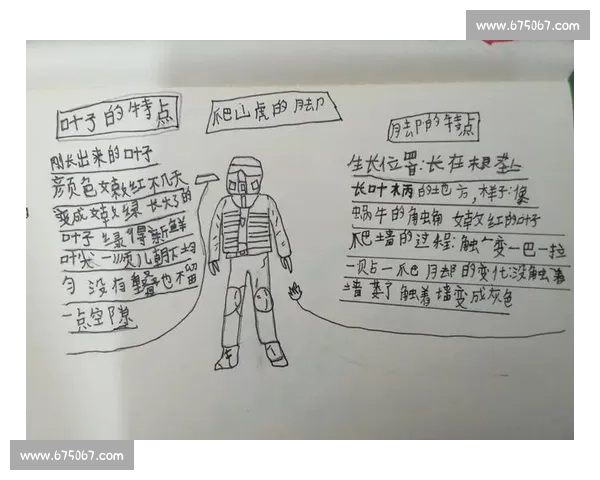 www.675067.com
叶子的特点
爬山虎的脚
脚的特点
刚长出来的叶子
颜色嫩红不几天
变成嫩绿 长大了的
叶子 绿得新鲜
叶尖一顺儿朝下均
匀 没有重叠也不留
一点空隙
生长位置:长在根茎上
长叶柄的地方,样子:像
蜗牛的触角 嫩红的叶子
爬墙的过程:触 变一巴一拉
一贴一爬 脚的变化:没触着
墙萎了 触着墙变成灰色
www.675067.com